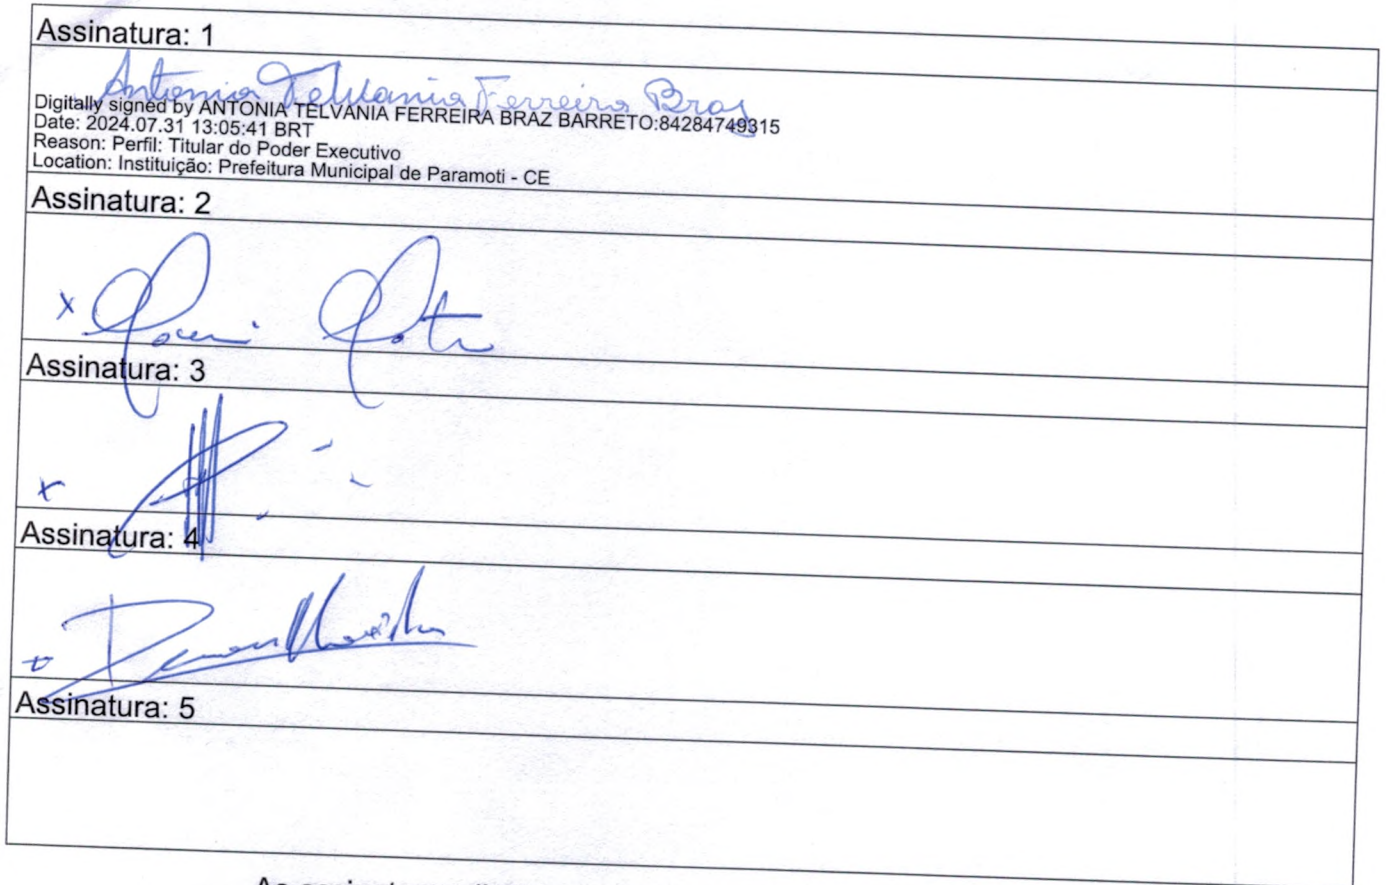 Assinatura: 1
Antonia Telvania Ferreira Braz
Digitally signed by ANTONIA TELVANIA FERREIRA BRAZ BARRETO:84284749315
Date: 2024.07.31 13:05:41 BRT
Reason: Perfil: Titular do Poder Executivo
Location: Instituição: Prefeitura Municipal de Paramoti - CE
Assinatura: 2
x
Assinatura: 3
x
Assinatura: 4
Assinatura: 5